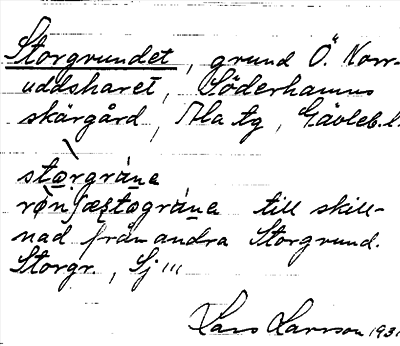 Storgrundet, grund Ö. Norr-
uddsharet, Söderhamns
skärgård, Ala tg, Gävleb. l.
storgräne
till skill-
nad från andra Storgrund.
Storgr., Sj'''
Lars Larsson 1931